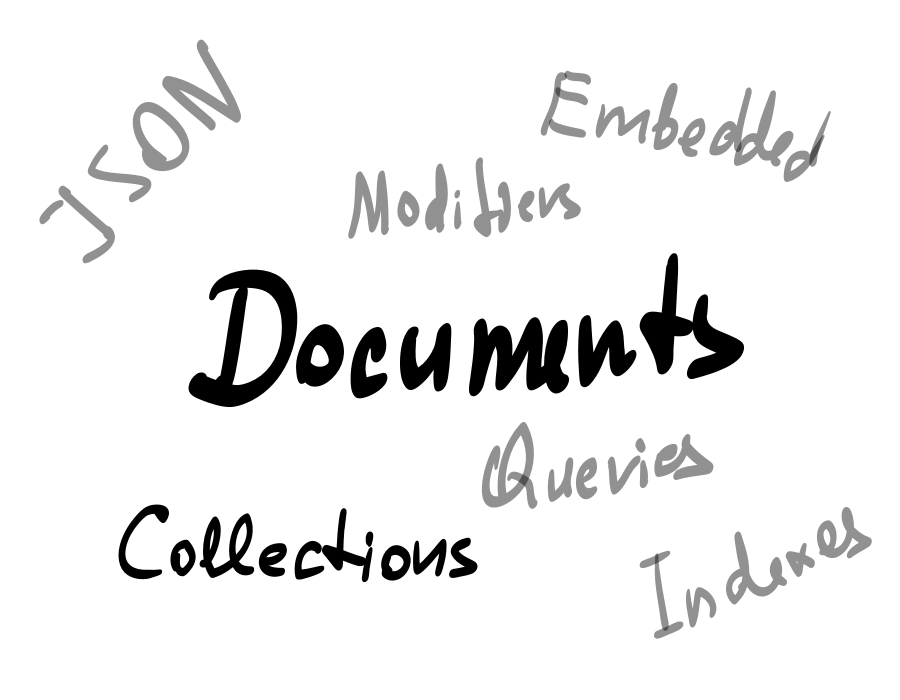 JSON
Embedded
Modifiers
Documents
Queries
Collections
Indexes